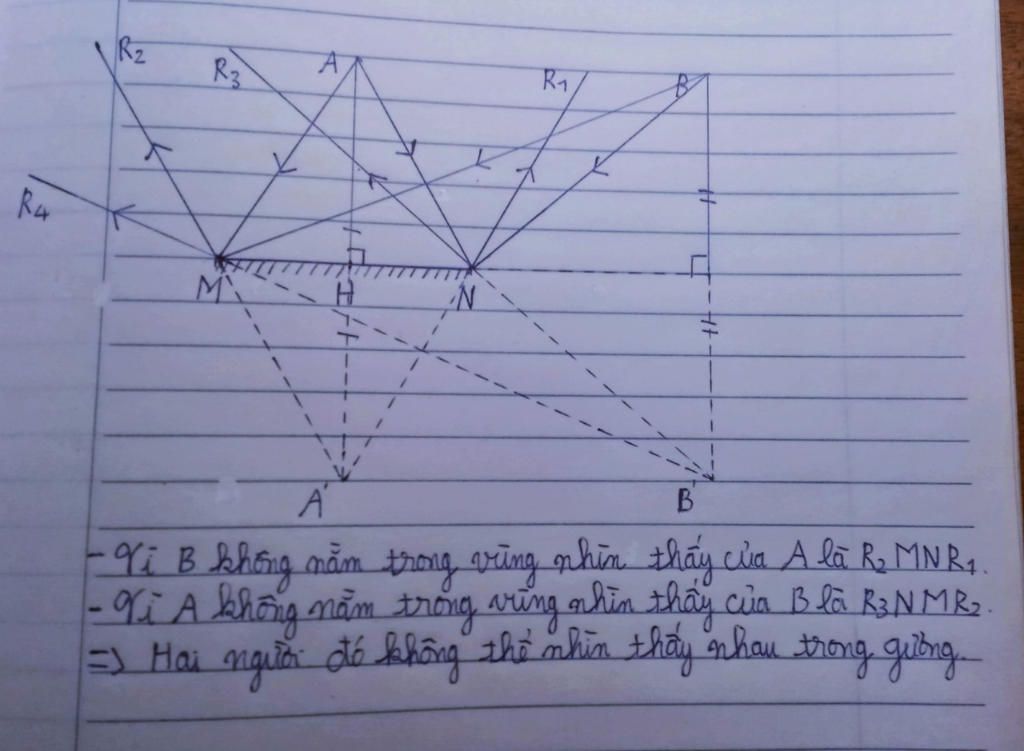 R₂
R₃
A
R₁
B
R₄
M
H
N
A'
B'
- Vì B không nằm trong vùng nhìn thấy của A là R₂MNR₁.
- Vì A không nằm trong vùng nhìn thấy của B là R₃NMR₂.
=> Hai người đó không thể nhìn thấy nhau trong gương.